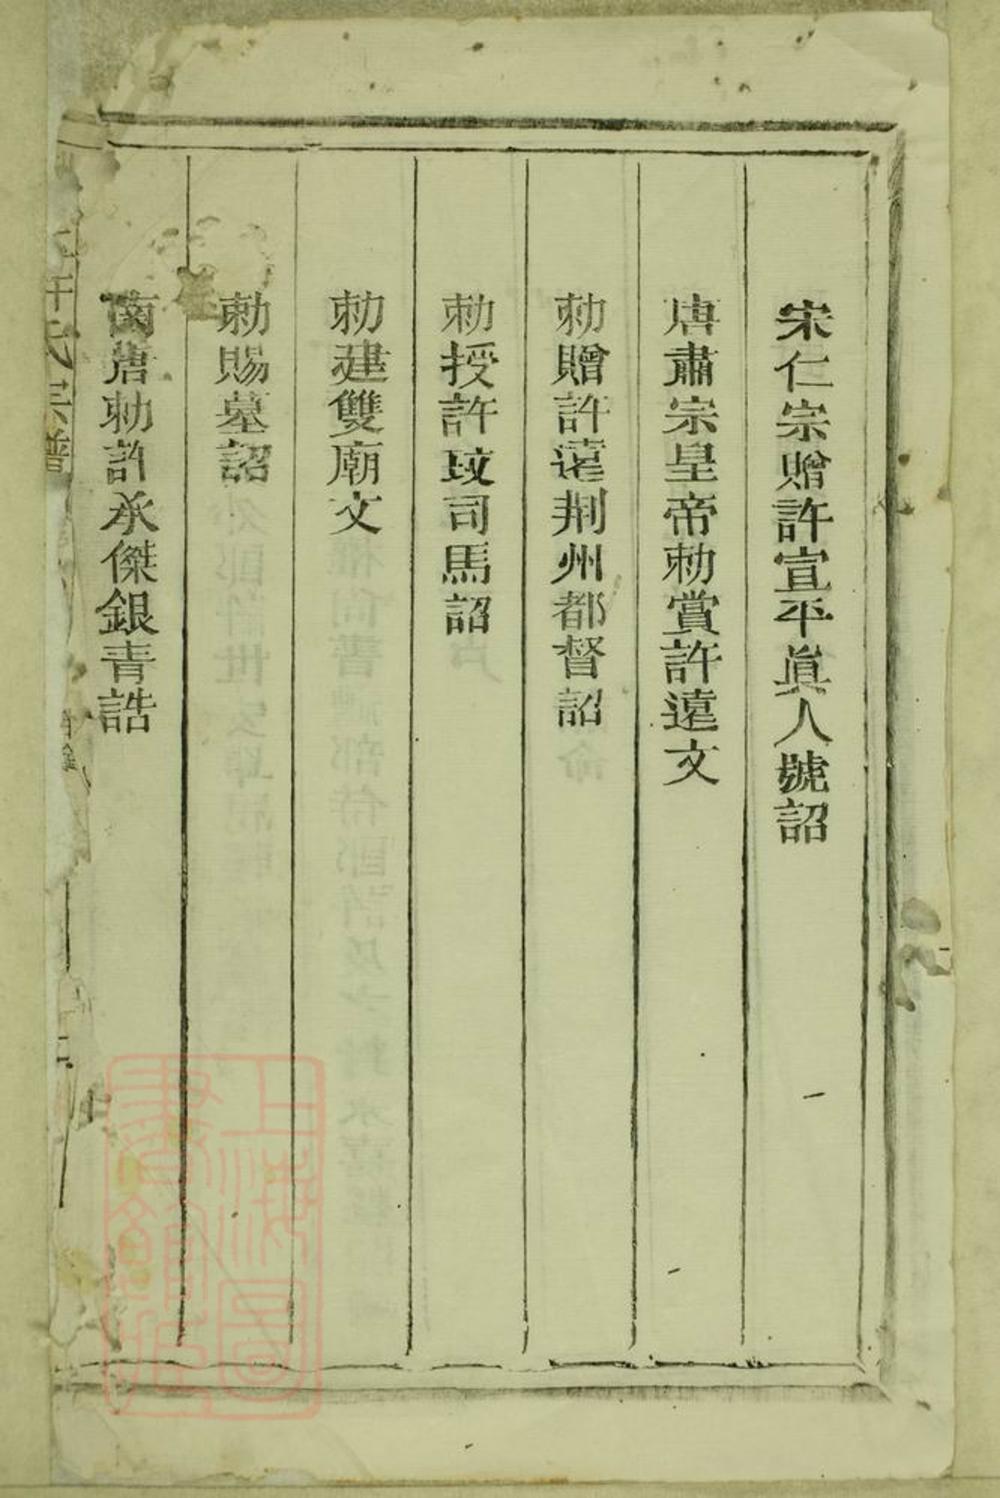 宋仁宗贈許宣平眞人號詔
唐肅宗皇帝勅賞許遠文
勅贈許遠荆州都督詔
勅授許玟司馬詔
勅建雙廟文
勅賜墓詔
南唐勅許承傑銀青誥
許氏宗譜
上海圖書館藏